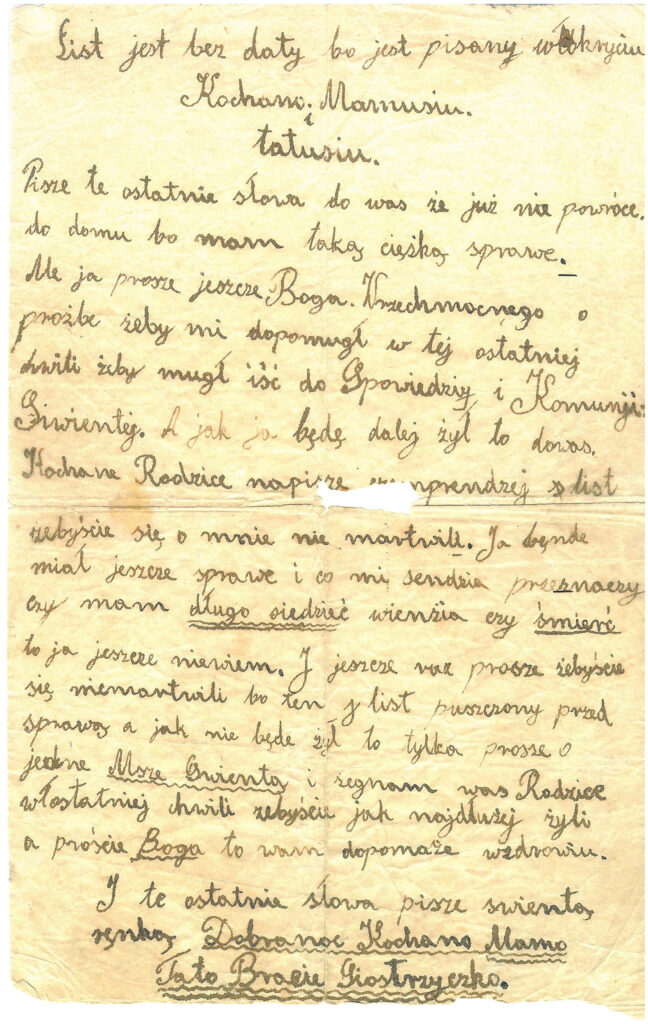 List jest bez daty bo jest pisany włukryciu
Kochano Mamusiu.
i
tatusiu.
Pisze te ostatnie słowa do was że już nie powróce.
do domu bo mam taką ciężką sprawe.
Ale ja prosze jeszcze Boga. Wrzechmocnego o
prożbe żeby mi dopomugł w tej ostatniej
chwili żeby mugł iść do Spowiedziy i Komunji
Siwientej. A jak ja będę dalej żył to dowas.
Kochane Rodzice napisze list
żebyście się o mnie nie martwili. Ja bęnde
miał jeszcze sprawe i co mi sendzia przeznaczy
czy mam długo siedzieć wienzia czy śmierć
to ja jeszcze niewiem. I jeszcze raz prosze żebyście
się niemartwili bo ten list puszczony przed
sprawą a jak nie będe żył to tylka prosze o
jedne Msze Swientą i żegnam was Rodzice
włostatniej chwili zebyście jak najdłużej żyli
a prościе Boga to wam dopomaże wzdrowiu.
I te ostatnie słowa pisze swientą
ręnką Dobranoc Kochano Mamo
Tato Bracie Siostrzyczko.